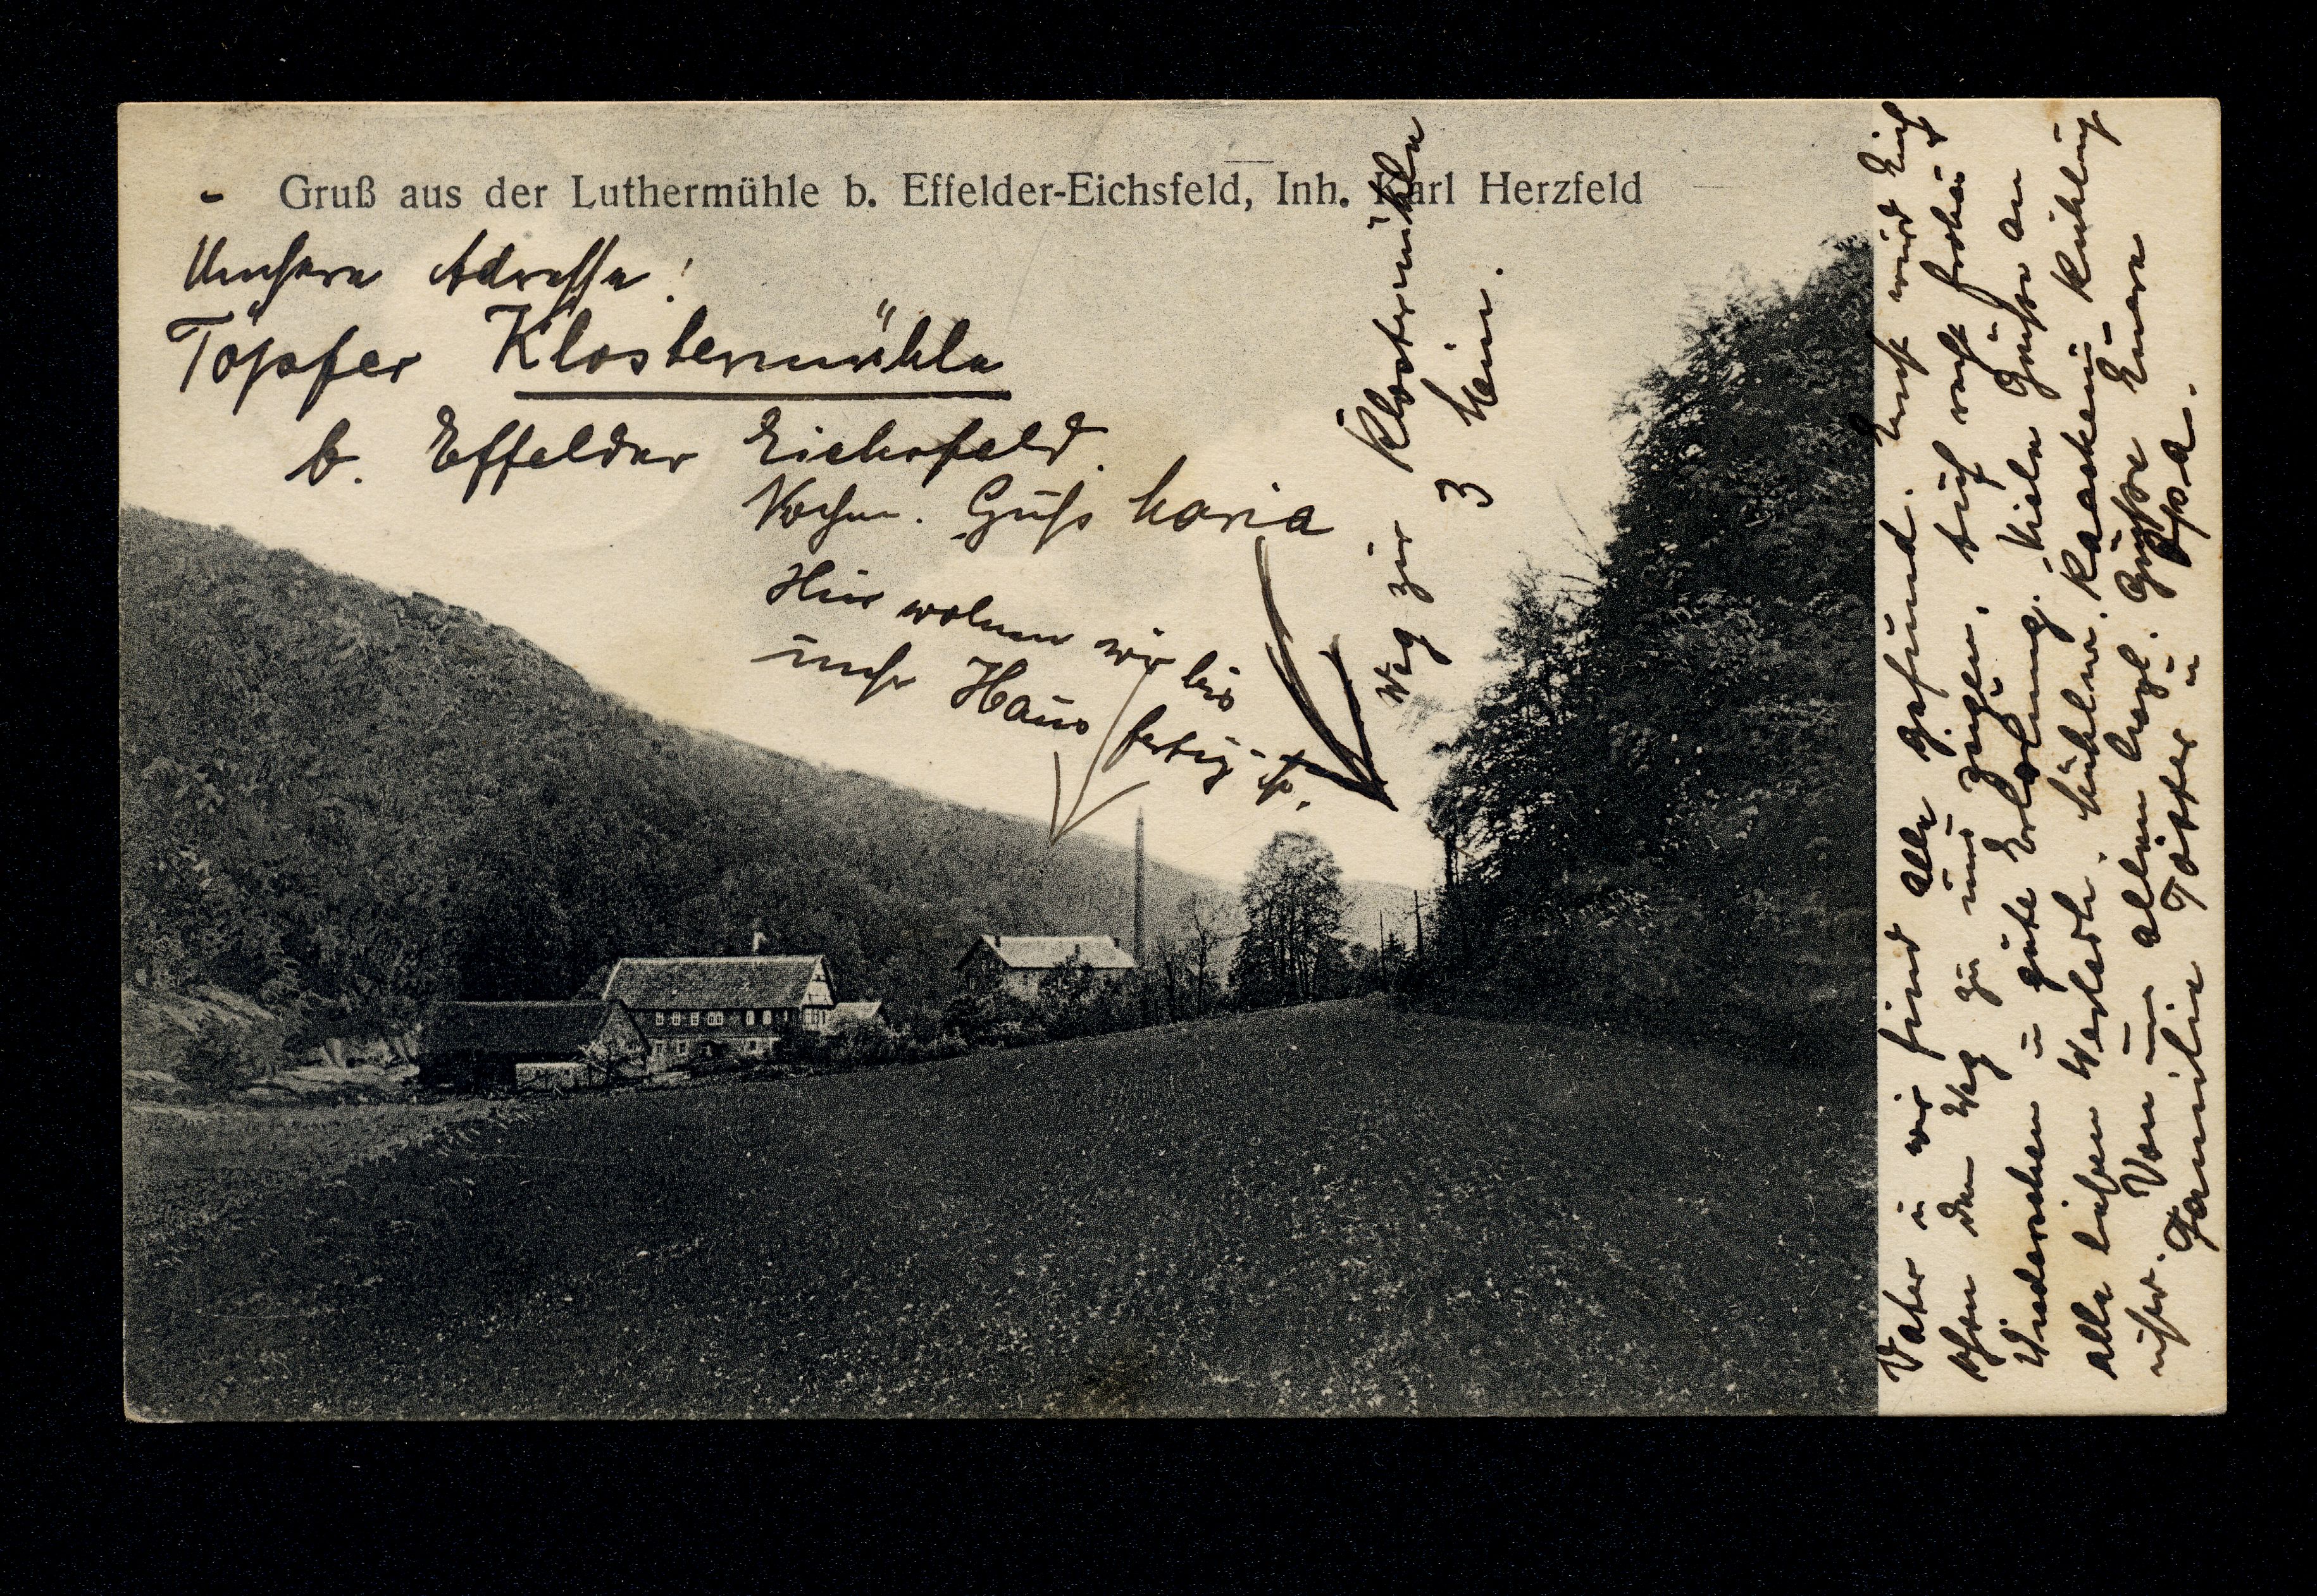 Gruß aus der Luthermühle b. Effelder-Eichsfeld, Inh. Karl Herzfeld
Unsere Adresse!
Töpfer Klostermühle
b. Effelder Eichsfeld.
Gruß Maria
Hier wohnen wir bis
unser Haus fertig ist.
Weg zur Klostermühle
3 Min.
Vater u wir sind alle gesund. Ernst wird Euch
schon den Weg zu uns zeigen. Auf recht frohes
Wiedersehen u gute Erholung. Viele Grüsse an
alle lieben
Von uns allen herzl. Grüsse Eurer
Familie Töpfer u Opa.